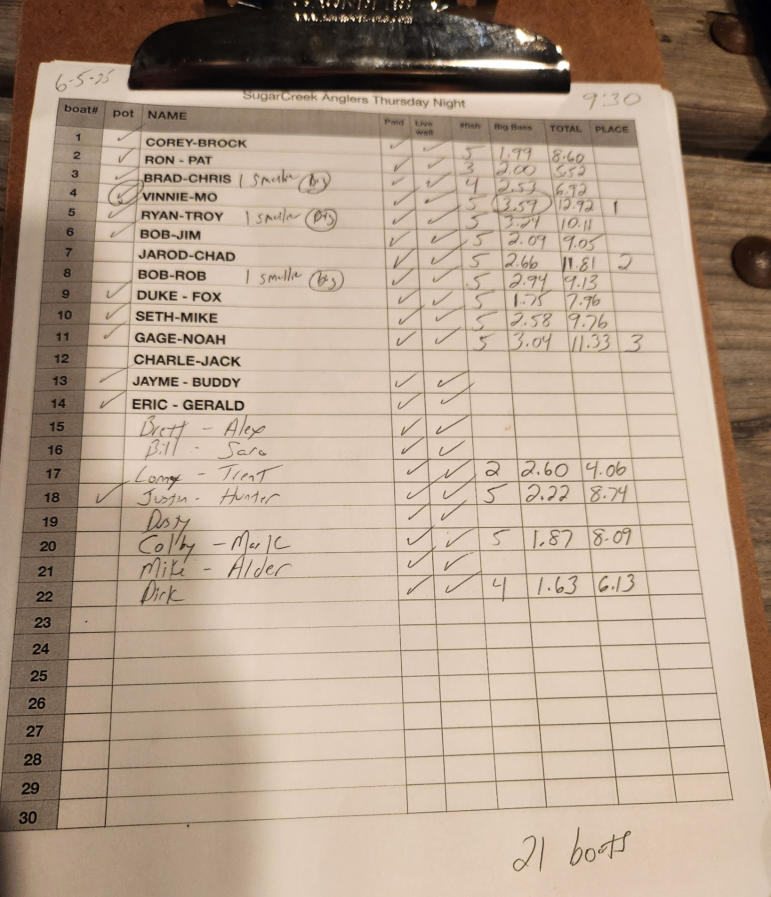 6-5-25
9:30
SugarCreek Anglers Thursday Night
boat# pot NAME Paid Live well #fish Big Bass TOTAL PLACE
1 ✓ COREY-BROCK ✓ ✓ 5 1.99 8.60
2 ✓ RON - PAT ✓ ✓ 3 2.00 5.52
3 ✓ BRAD-CHRIS 1 smaller Big ✓ ✓ 4 2.53 6.92
4 ✓ VINNIE-MO ✓ ✓ 5 3.59 12.92 1
5 ✓ RYAN-TROY 1 smaller Big ✓ ✓ 5 3.24 10.11
6 ✓ BOB-JIM ✓ ✓ 5 2.09 9.05
7 JAROD-CHAD ✓ ✓ 5 2.66 11.81 2
8 BOB-ROB 1 smaller Big ✓ ✓ 5 2.94 9.13
9 ✓ DUKE - FOX ✓ ✓ 5 1.75 7.96
10 ✓ SETH-MIKE ✓ ✓ 5 2.58 9.76
11 ✓ GAGE-NOAH ✓ ✓ 5 3.04 11.33 3
12 CHARLE-JACK
13 ✓ JAYME - BUDDY ✓ ✓
14 ✓ ERIC - GERALD ✓ ✓
15 Brett - Alex ✓ ✓
16 Bill - Sara ✓ ✓
17 - Trent ✓ ✓ 2 2.60 4.06
18 ✓ Justin - Hunter ✓ ✓ 5 2.22 8.74
19 Dusty ✓ ✓
20 Colby - Mark ✓ ✓ 5 1.87 8.09
21 Mike - Alder ✓ ✓
22 Dirk ✓ ✓ 4 1.63 6.13
23
24
25
26
27
28
29
30
21 boats